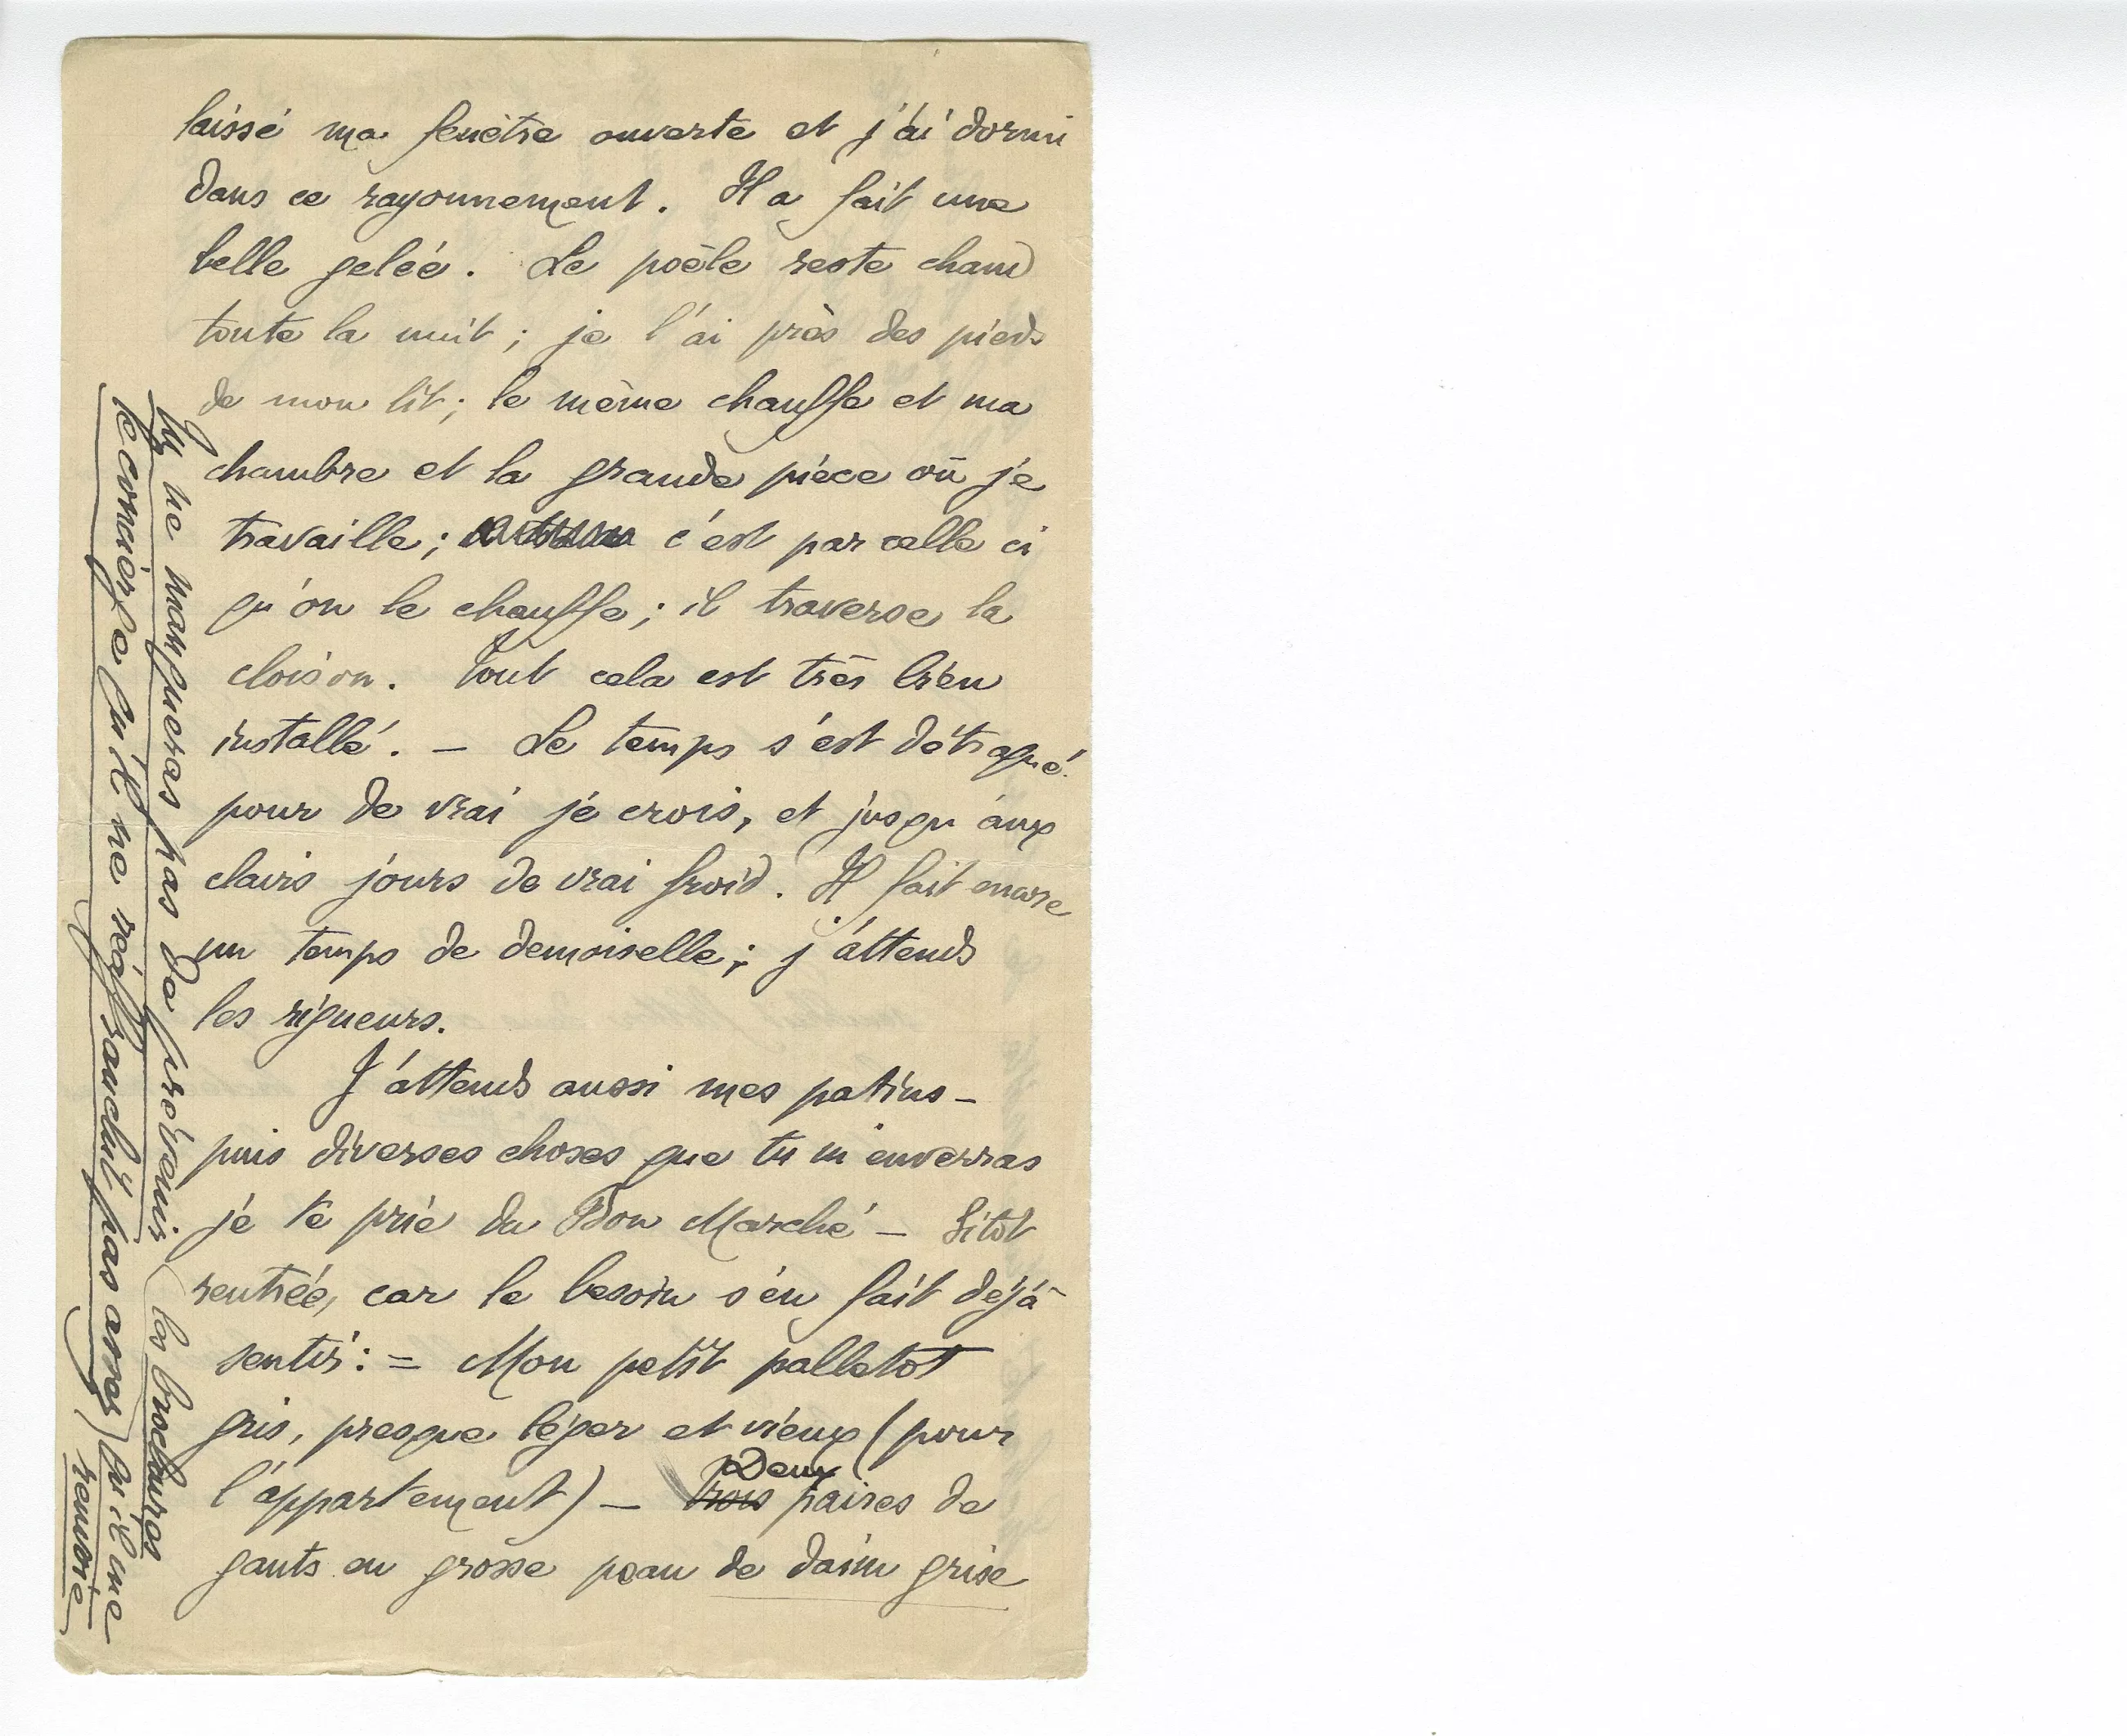 laissé ma fenêtre ouverte et j'ai dormi
dans ce rayonnement. Il a fait une
belle gelée. Le poêle reste chaud
toute la nuit ; je l'ai près des pieds
de mon lit ; le même chauffe et ma
chambre et la grande pièce où je
travaille ; c'est par celle ci
qu'on le chauffe ; il traverse la
cloison. Tout cela est très bien
installé. — Le temps s'est détraqué
pour de vrai je crois, et jusqu'aux
clairs jours de vrai froid. Il fait encore
un temps de demoiselle ; j'attends
les rigueurs.
J'attends aussi mes patins —
puis diverses choses que tu m'enverras
je te prie du Bon Marché — Sitôt
rentrée, car le besoin s'en fait déjà
sentir : = Mon petit palletot
gris, presque léger et vieux (pour
l'appartement) — trois Deux paires de
gants en grosse peau de daim grise
Tu ne manqueras pas de prévenir
le concierge qu'il n'affranchit pas assez les brochures
qu'il me
renvoie